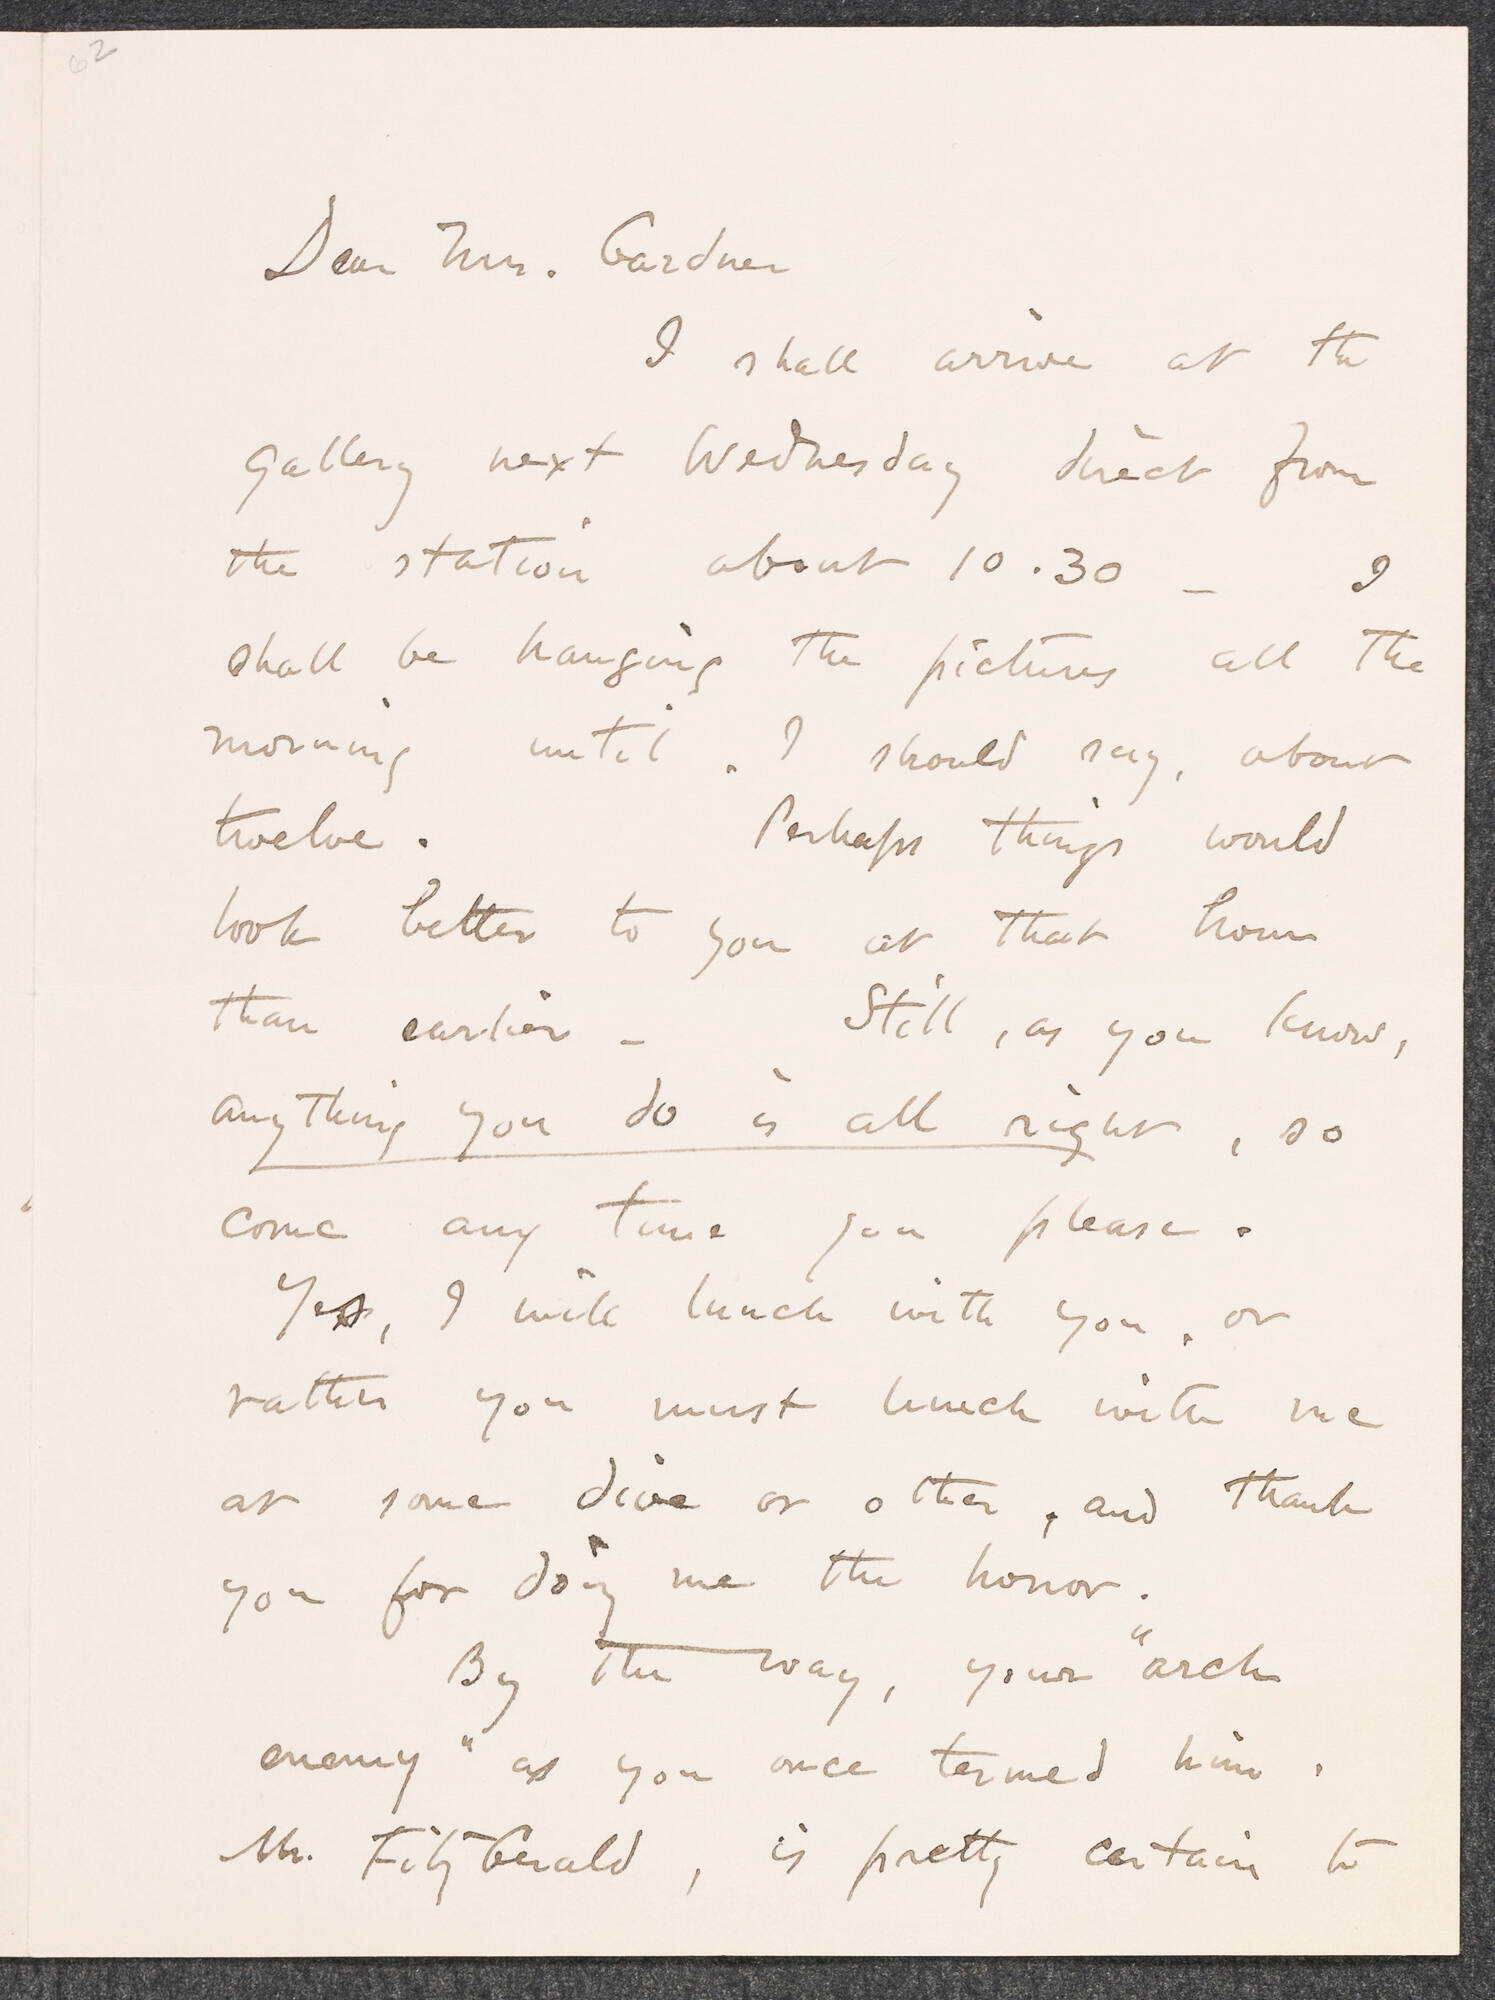 62
Dear Mrs. Gardner
I shall arrive at the
gallery next Wednesday direct from
the station about 10.30 – I
shall be hanging the pictures all the
morning until, I should say, about
twelve. Perhaps things would
look better to you at that hour
than earlier – Still, as you know,
anything you do is all right, so
come any time you please.
Yes, I will lunch with you, or
rather you must lunch with me
at some dive or other, and thank
you for doing me the honor.
By the way, your "arch
enemy" as you once termed him,
Mr. FitzGerald, is pretty certain to